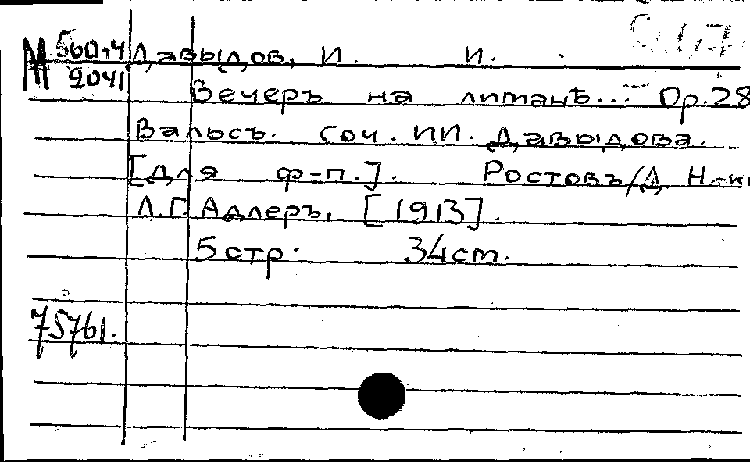 М 560.4 Давыдов, И. И.
2041
Вечеръ на лиманѣ... Op. 28
Вальсъ. Соч. И.И. Давыдова.
[Для ф-п.]. Ростовъ/Д
Л.Г. Адлеръ, [1913].
5 стр. 34 ст.
75761.